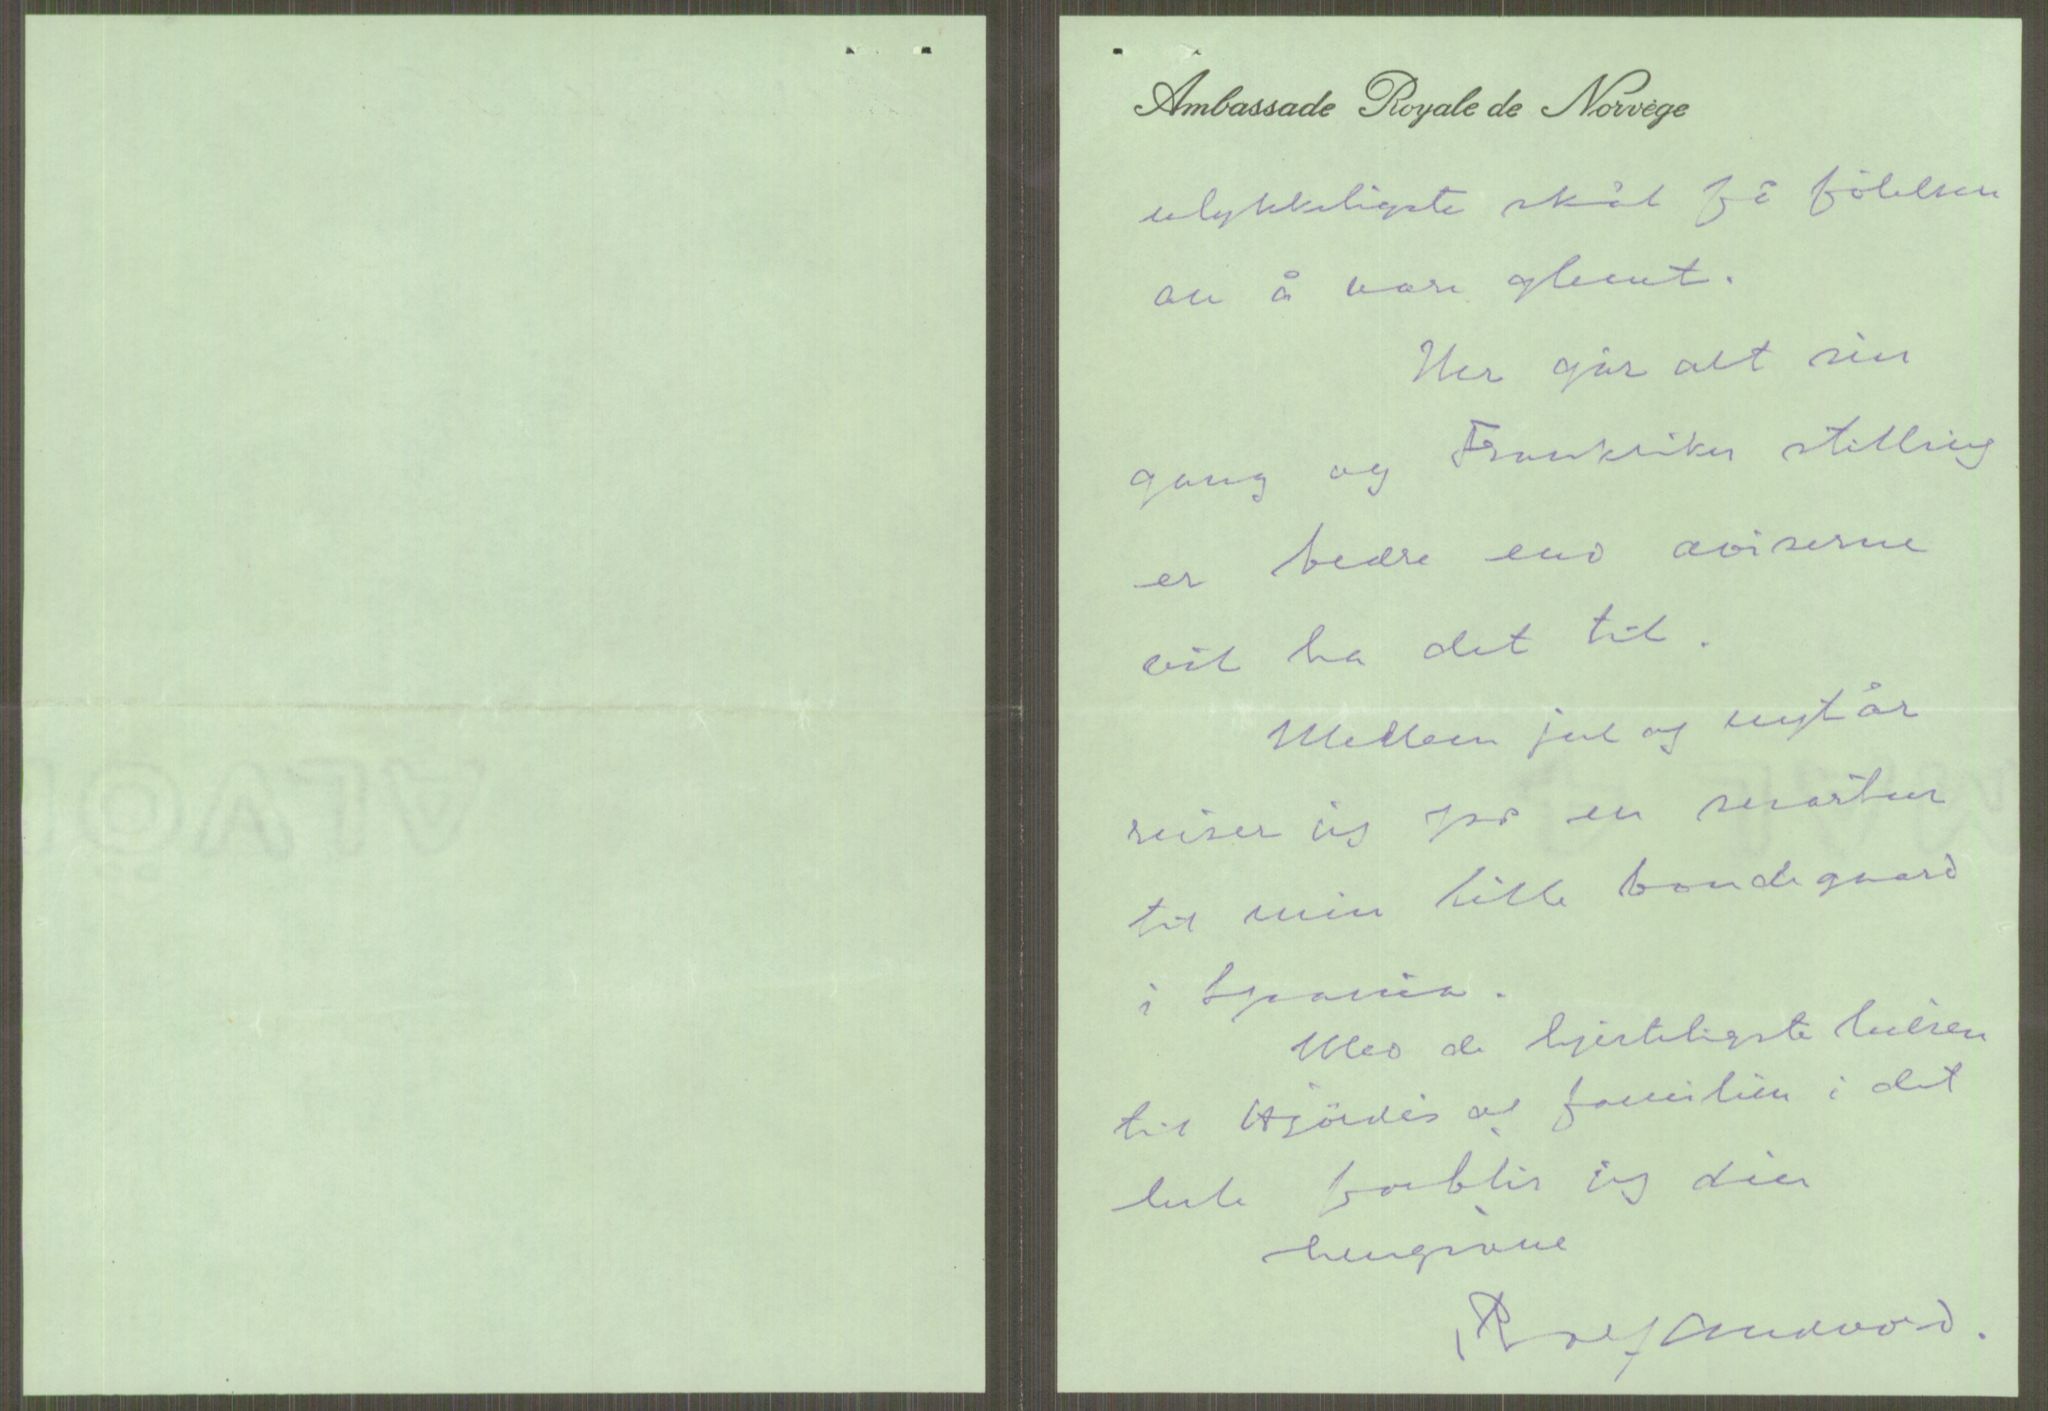 Ambassade Royale de Norvège
ulykkeligste skål få følelsen
av å være glemt.
Her går alt sin
gang og Frankrikes stilling
er bedre end aviserne
vil ha det til.
Mellem jul og nytår
reiser jeg på en snartur
til min lille bondegaard
i Spania.
Med de hjerteligste hilsen
til Hjördis og familien i det
hele forblir jeg din
hengivne
Rolf Andvord.